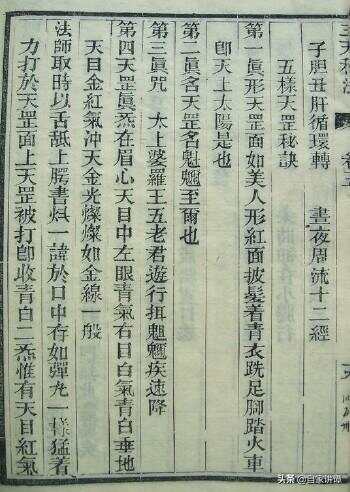 子胆丑肝循環轉　晝夜周流十二經
五樣天罡秘訣
第一眞形天罡面如美人形紅面披髮着青衣跣足脚踏火車
卽天上太陽是也
第二眞名天罡名魁魓至爾也
第三眞咒　太上婆羅王五老君遊行抂魁魓疾速降
第四天罡眞炁在眉心天目中左眼青氣右目白氣青白垂地
天目金紅氣冲天金光燦燦如金線一般
法師取時以舌舐上腭書　一諱於口中存如彈丸一樣猛着
力打於天罡面上天罡被打卽收青白二炁惟有天目紅氣
头条 @自家讲谭